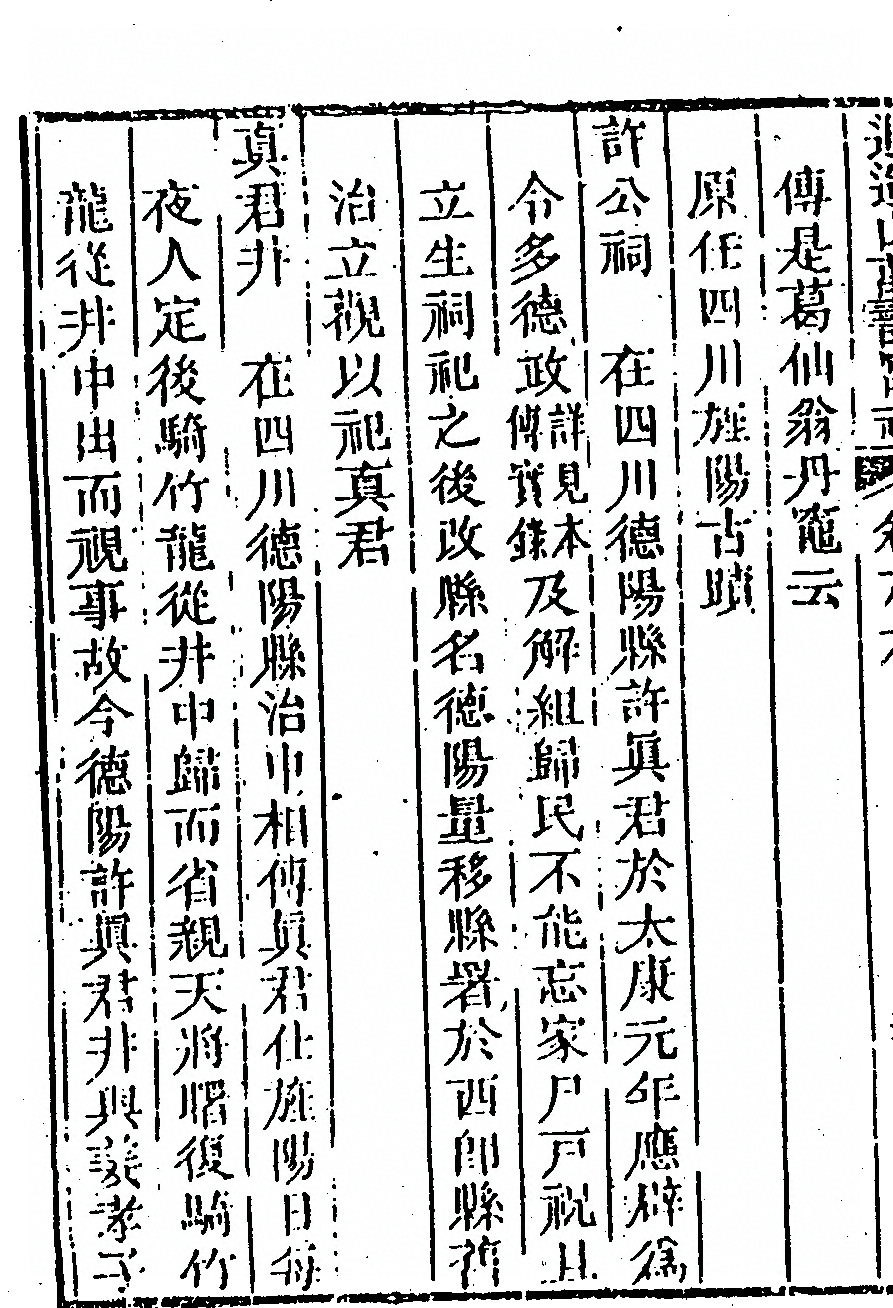 逍遙山萬壽宮志 卷六
傳是葛仙翁丹竈云
原任四川旌陽古蹟
許公祠 在四川德陽縣許眞君於太康元年應辟爲
令多德政詳見本傳實錄及解組歸民不能忘家尸戸祝且
立生祠祀之後改縣名德陽量移縣署於西卽縣舊
治立觀以祀真君
真君井 在四川德陽縣治中相傳眞君仕旌陽日每
夜人定後騎竹龍從井中歸而省親天將曙復騎竹
龍從井中出而視事故今德陽許眞君井與姜孝子